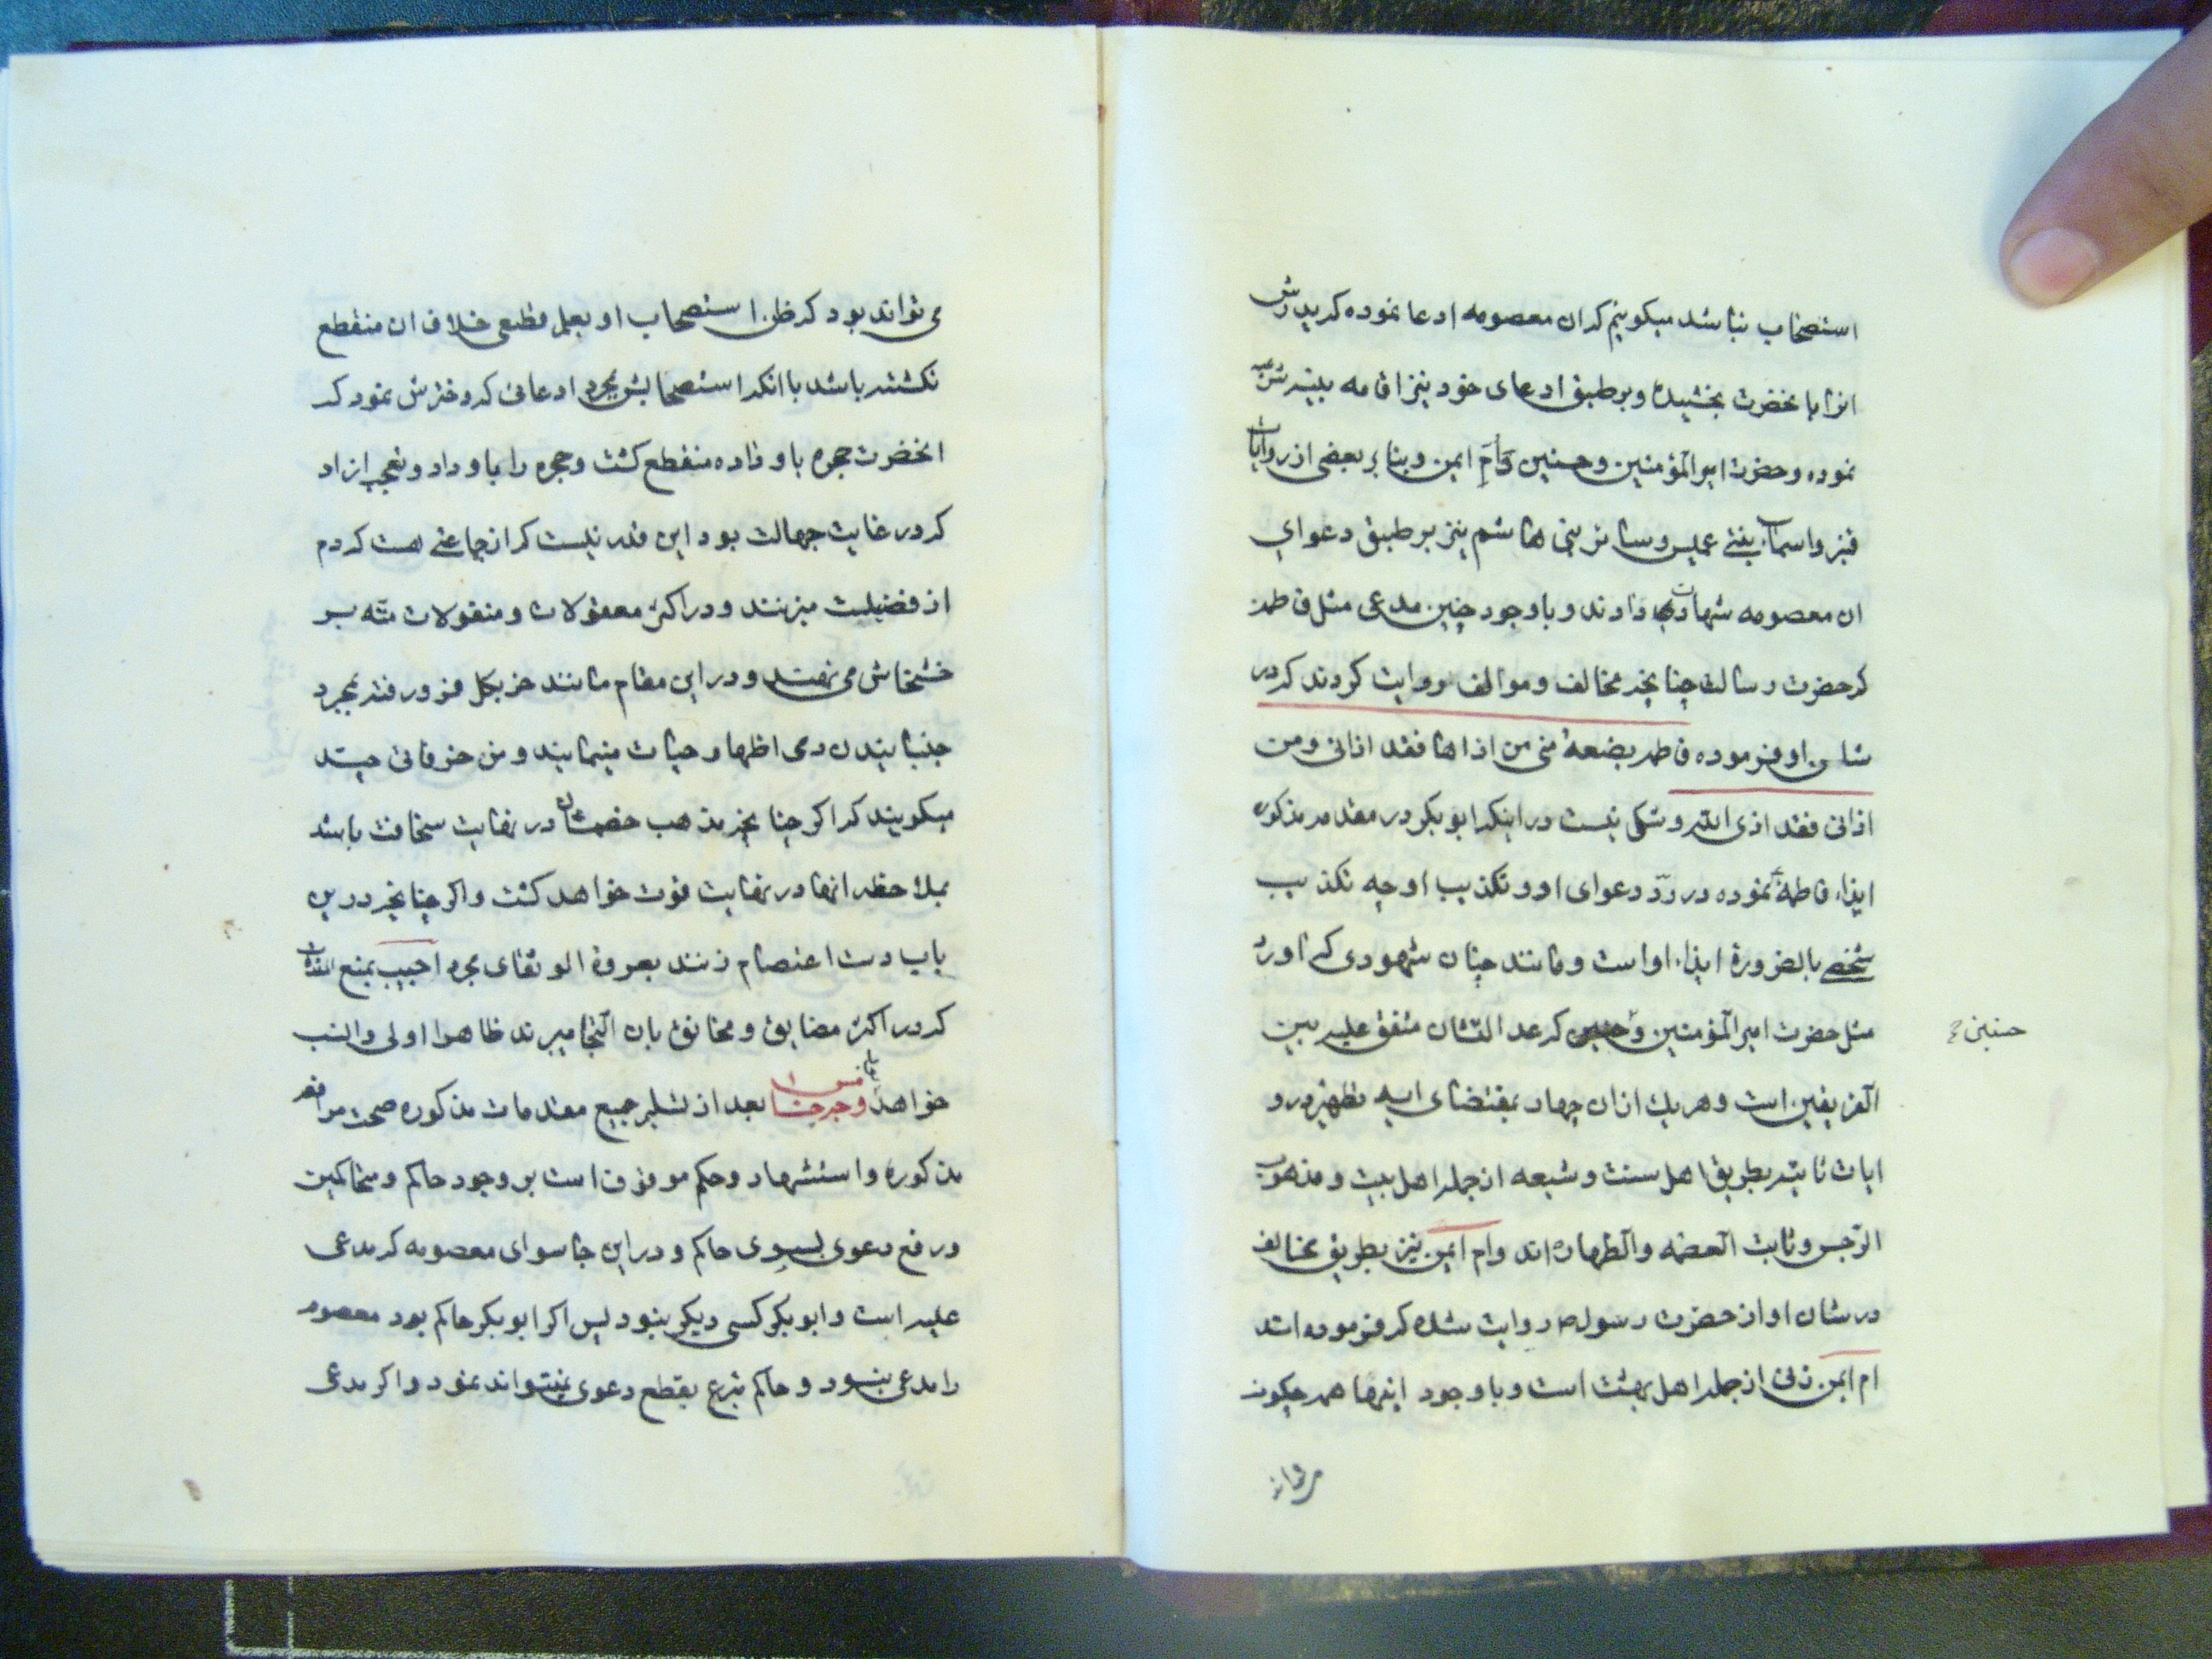 استصحاب نباشد میکوییم که ان معصومه ادعا نموده که پدرش
انرا بانحضرت بخشیده و بر طبق ادعای خود نیز اقامه بینه شرعیه
نموده و حضرت امیر المؤمنین و حسنین و اُمّ ایمن و بنا بر بعضی از روایات
قنبر و اسماء بنت عمیس و سائر بنی هاشم نیز بر طبق دعوای
ان معصومه شهادت داده اند و با وجود چنین مدعی مثل فاطمه
که حضرت رسالت چنانچه مخالف و موالف روایت کردند که در
شان او فرموده فاطمه بضعة منی من اذاها فقد اذانی و من
اذانی فقد اذی الله و شکی نیست در اینکه ابو بکر در مقدمه مذکوره
ایذاء فاطمه نموده در ردّ دعوای او و تکذیب او چه تکذیب
شخصی بالضرورة ایذاء او است و مانند چنان شهودی که اورد
مثل حضرت امیر المؤمنین و حسنین که عدالتشان متفق علیه بین
حسنین
الفریقین است و هر یك از ان چهار بمقتضای ایه تطهیر و
ایات ثابته بطریق اهل سنت و شیعه از جمله اهل بیت و مذهوب
الرّجس و ثابت العصمه و الطهاره اند و ام ایمن نیز بطریق مخالف
در شان او از حضرت رسول ص روایت شده که فرموده اند
ام ایمن زنی از جمله اهل بهشت است و با وجود اینها همه چکونه
می تواند بود که ظن استصحاب او بعلم قطعی خلاف ان منقطع
نکشته باشد با انکه استصحابش بمجرد ادعائی که دخترش نمود که
انحضرت حجره باو داده منقطع کشت و حجره را باو داد و تعجب از اد
که در غایت جهالت بود این قدر نیست که از جماعتی هست که دم
از فضیلت میزنند و در اکثر معقولات و منقولات متّه بر
خشخاش می نهند و در این مقام مانند خر بکل فرو رفته بمجرد
جنبانیدن دمی اظهار حیات مینمایند و من خرفانی چند
میکویند که اکر چنانچه مذهب خصمشان در نهایت سخافت باشد
بملاحظه انها در نهایت قوت خواهد کشت و اکر چنانچه درین
باب دست اعتصام زنند بعروة الوثقای مجرد اجیب بمنع
که در اکثر مضایق و مخانق بان التجا میبرند ظاهرا اولی و انسب
خواهد بود و جه خامس ا بعد از تسلیم جمیع مقدمات مذکوره صحت مرافعه
مذکوره و استشهاد و حکم موقوف است بر وجود حاکم و متحاکمین
و رفع دعوی بسوی حاکم و در این جا سوای معصومه که مدعی
علیه است و ابو بکر کسی دیکر نبود پس اکر ابو بکر حاکم بود معصومه
را مدعی نبود و حاکم شرع بقطع دعوی نمیتواند نمود و اکر مدعی